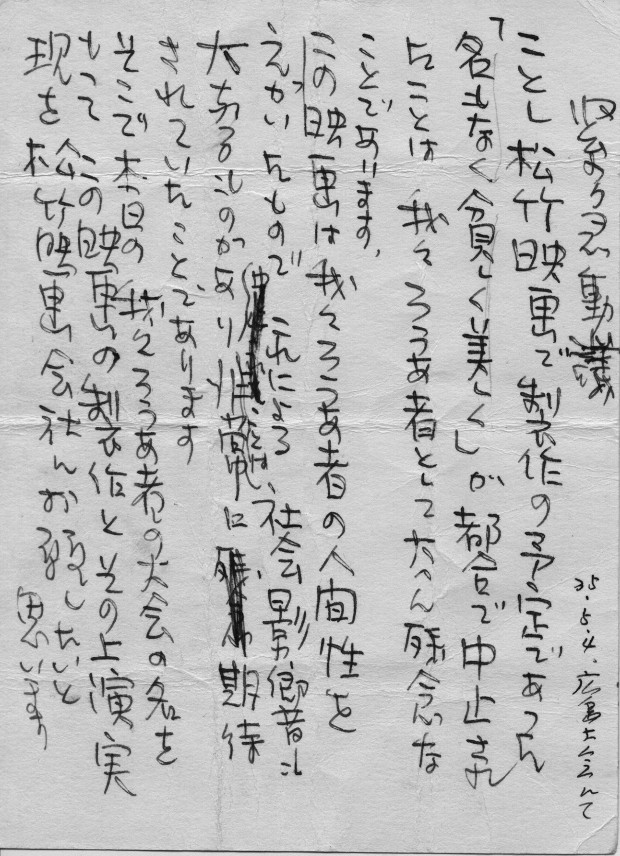 動議
35.5.4. 広島大会にて
ことし松竹映画で製作の予定であった
「名もなく貧しく美しく」が都合で中止され
たことは我々ろうあ者としてたへん残念な
ことであります、
この映画は我々ろうあ者の人間性を
えがいたもので これによる 社会
大なるものがあり 期待
されていたことであります
そこで本日の我々ろうあ者の大会の名を
もって この映画の製作とその上演実
現を松竹映画会社にお願したいと
思います